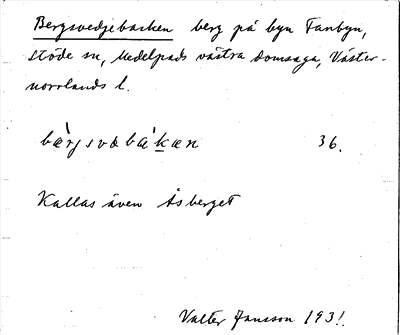 Bergsvedjebacken berg på byn Fanbyn,
Stöde sn, Medelpads västra domsaga, Väster-
norrlands l.
bærjsvəbakæn 36.
Kallas även Åsberget
Valter Jansson 1931.